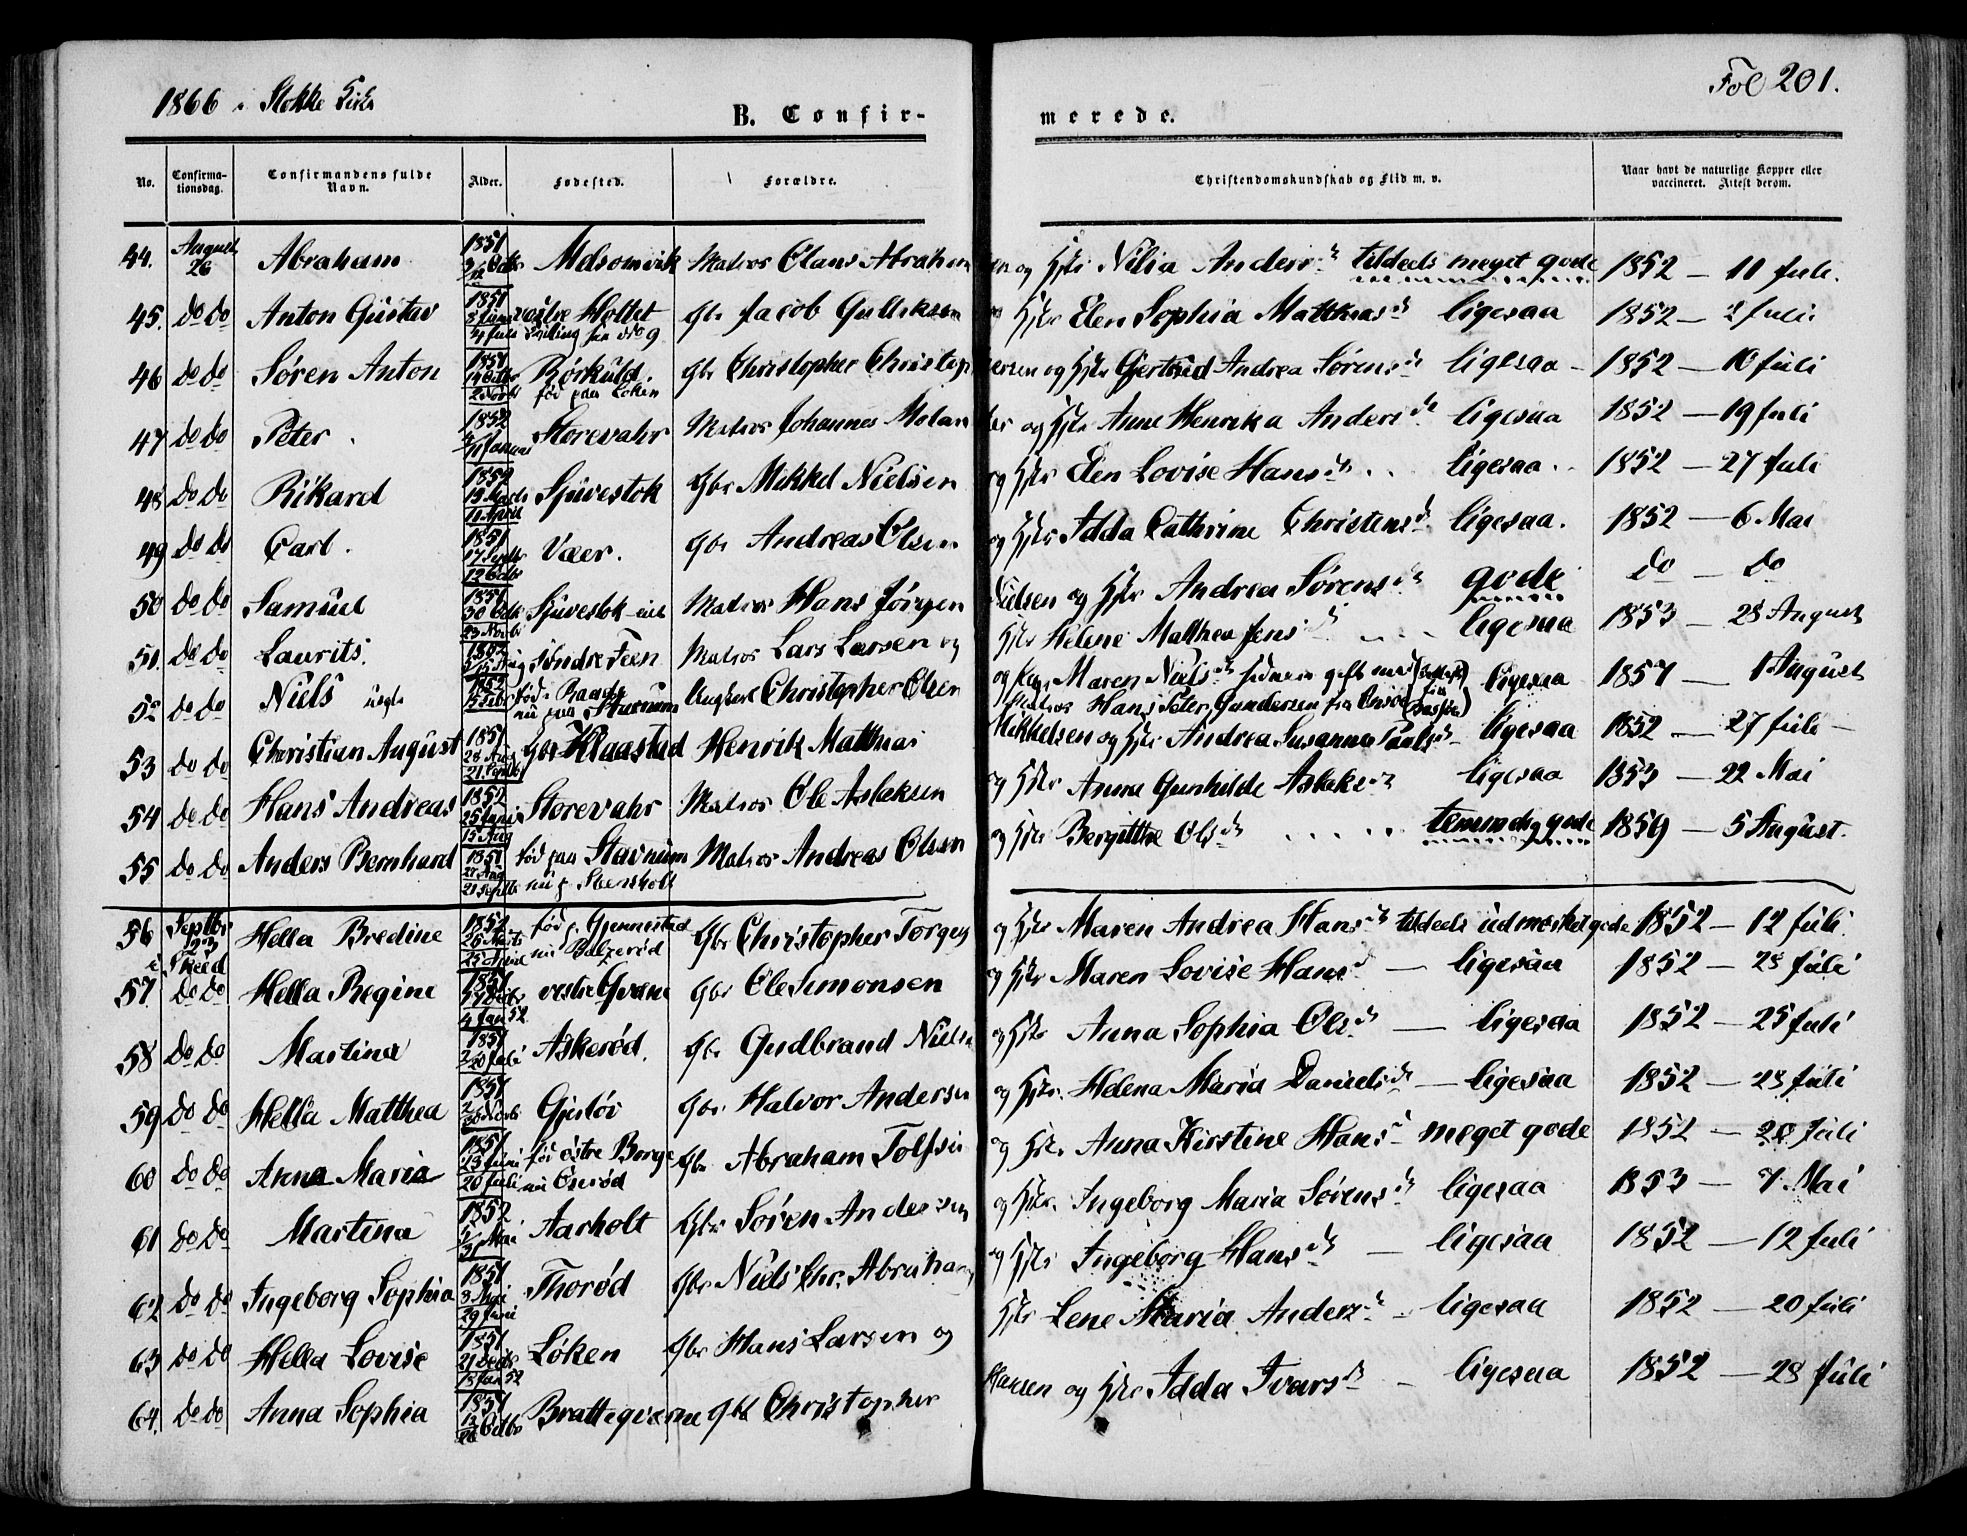 1866 i Stokke Kirke
Fol 201.
B. Confirmerede.
No. Confirmationsdag. Confirmandens fulde Navn. Alder. Fødested. Forældre. Christendomskundskab og Flid m. v. Naar havt de naturlige Kopper eller vaccineret. Attest derom.
44. August 26 Abraham 1851 Octbr Melsomvik Matros Olaus Abrahamsen og Hstr Nilia Andersd tildeels meget gode 1852 — 11 Juli.
45. do do Anton Gustav 1851 3 Juni 4 Juli vestre Holtet Tvilling Gbr Jacob Gulliksen og Hstr Elen Sophia Matthiasd ligesaa 1852 — 2 Juli
46 do do Søren Anton 1851 14 Octbr 2 Novbr Rørkuld. fød paa Løken Gbr Christopher Christophersen og Hstr Gjertrud Andrea Sørensd ligesaa — 1852 — 10 Juli
47 do do Peter. 1852 Januar Storevahr Matros Johannes Molander og Hstr Anne Henrika Andersd ligesaa 1852 — 19 Juli
48 do do Rikard 1852 13 Marts 10 April Sjuvestok Gbr Mikkel Nielsen og Hstr Elen Lovise Hansd ligesaa 1852 — 27 Juli
49 do do Carl. 1851 17 Septbr 12 Octbr Vaer. Gbr Andreas Olsen og Hstr Idda Cathrine Christensd ligesaa. 1852 — 6 Mai
50 do do Samuel 1851 30 Octbr 23 Novbr Sjuvestok eiet Matros Hans Jørgen Nielsen og Hstr Andrea Sørensd gode do — do
51. do do Laurits. 1852 Aug Søndre Feen Matros Lars Larsen og Hstr Helene Mathea Jensd ligesaa 1853 — 28 August
52 do do Niels uegte 1852 Febr fød nu paa Stavnum Ungkarl Christopher Olsen og Pige Maren Nielsd siden gift med Matros Hans Peter Gundersen fra ligesaa 1857 — 1 August
53 do do Christian August 1851 28 Aug 21 Septbr Gbr Klaastad Henrik Matthias Mikkelsen og Hstr Andrea Susanna Paulsd ligesaa 1852 — 27 Juli —
54 do do Hans Andreas 1852 25 Juni 15 Aug Storevahr Matros Ole Aslaksen og Hstr Anna Gunhilde Aslaksd ligesaa 1853 — 22 Mai
55 do do Anders Bernhard 1851 27 Aug 21 Septbr fød paa Stavnum nu p. Stensholt Matros Andreas Olsen og Hstr Bergitthe Olsd temmelig gode 1859 — 5 August.
56 Septbr 23 i Skeed Hella Bredine 1852 26 Marts 25 April fød p. Gjennestad nu Palgerød Gbr Christopher Torgers og Hstr Maren Andrea Hansd tildeels udmerket gode 1852 — 12 Juli
57. do do Hella Regine 1851 Octbr 4 Jan 52 vestre Gvane Gbr Ole Simonsen og Hstr Maren Lovise Hansd — ligesaa 1852 — 28 Juli
58 do do Martina 1851 20 Juli Askerød. Gbr Gudbrand Nielsen og Hstr Anna Sophia Olsd — ligesaa 1852 — 25 Juli
59 do do Hella Matthea 1851 Gjeløv Gbr Halvor Andersen og Hstr. Helena Maria Danielsd — ligesaa 1852 — 28 Juli
60 do do Anna Maria 1851 13 Juni 20 Juli fød østre Borge nu Enrød Gbr. Abraham Tolfsen og Hstr. Anna Kirstine Hansd meget gode 1852 — 20 Juli
61 do do Martina 1852 31 Mai Aarholt Gbr Søren Andersen og Hstr. Ingeborg Maria Sørensd ligesaa 1853 — 7 Mai
62 do do Ingeborg Sophia 1851 3 Mai 29 Juni Thorød Gbr Niels Chr. Abrahams og Hstr Ingeborg Hansd — ligesaa 1852 — 12 Juli
63 do do Hella Lovise 1851 21 Decbr 18 Jan 52 Løken Gbr Hans Larsen og Hstr Lene Maria Andersd — ligesaa 1852 — 20 Juli
64. do do Anna Sophia 1851 Octbr Brattegverne Gbr Christopher Hansen og Hstr Idda Ivarsd — ligesaa 1852 — 28 Juli